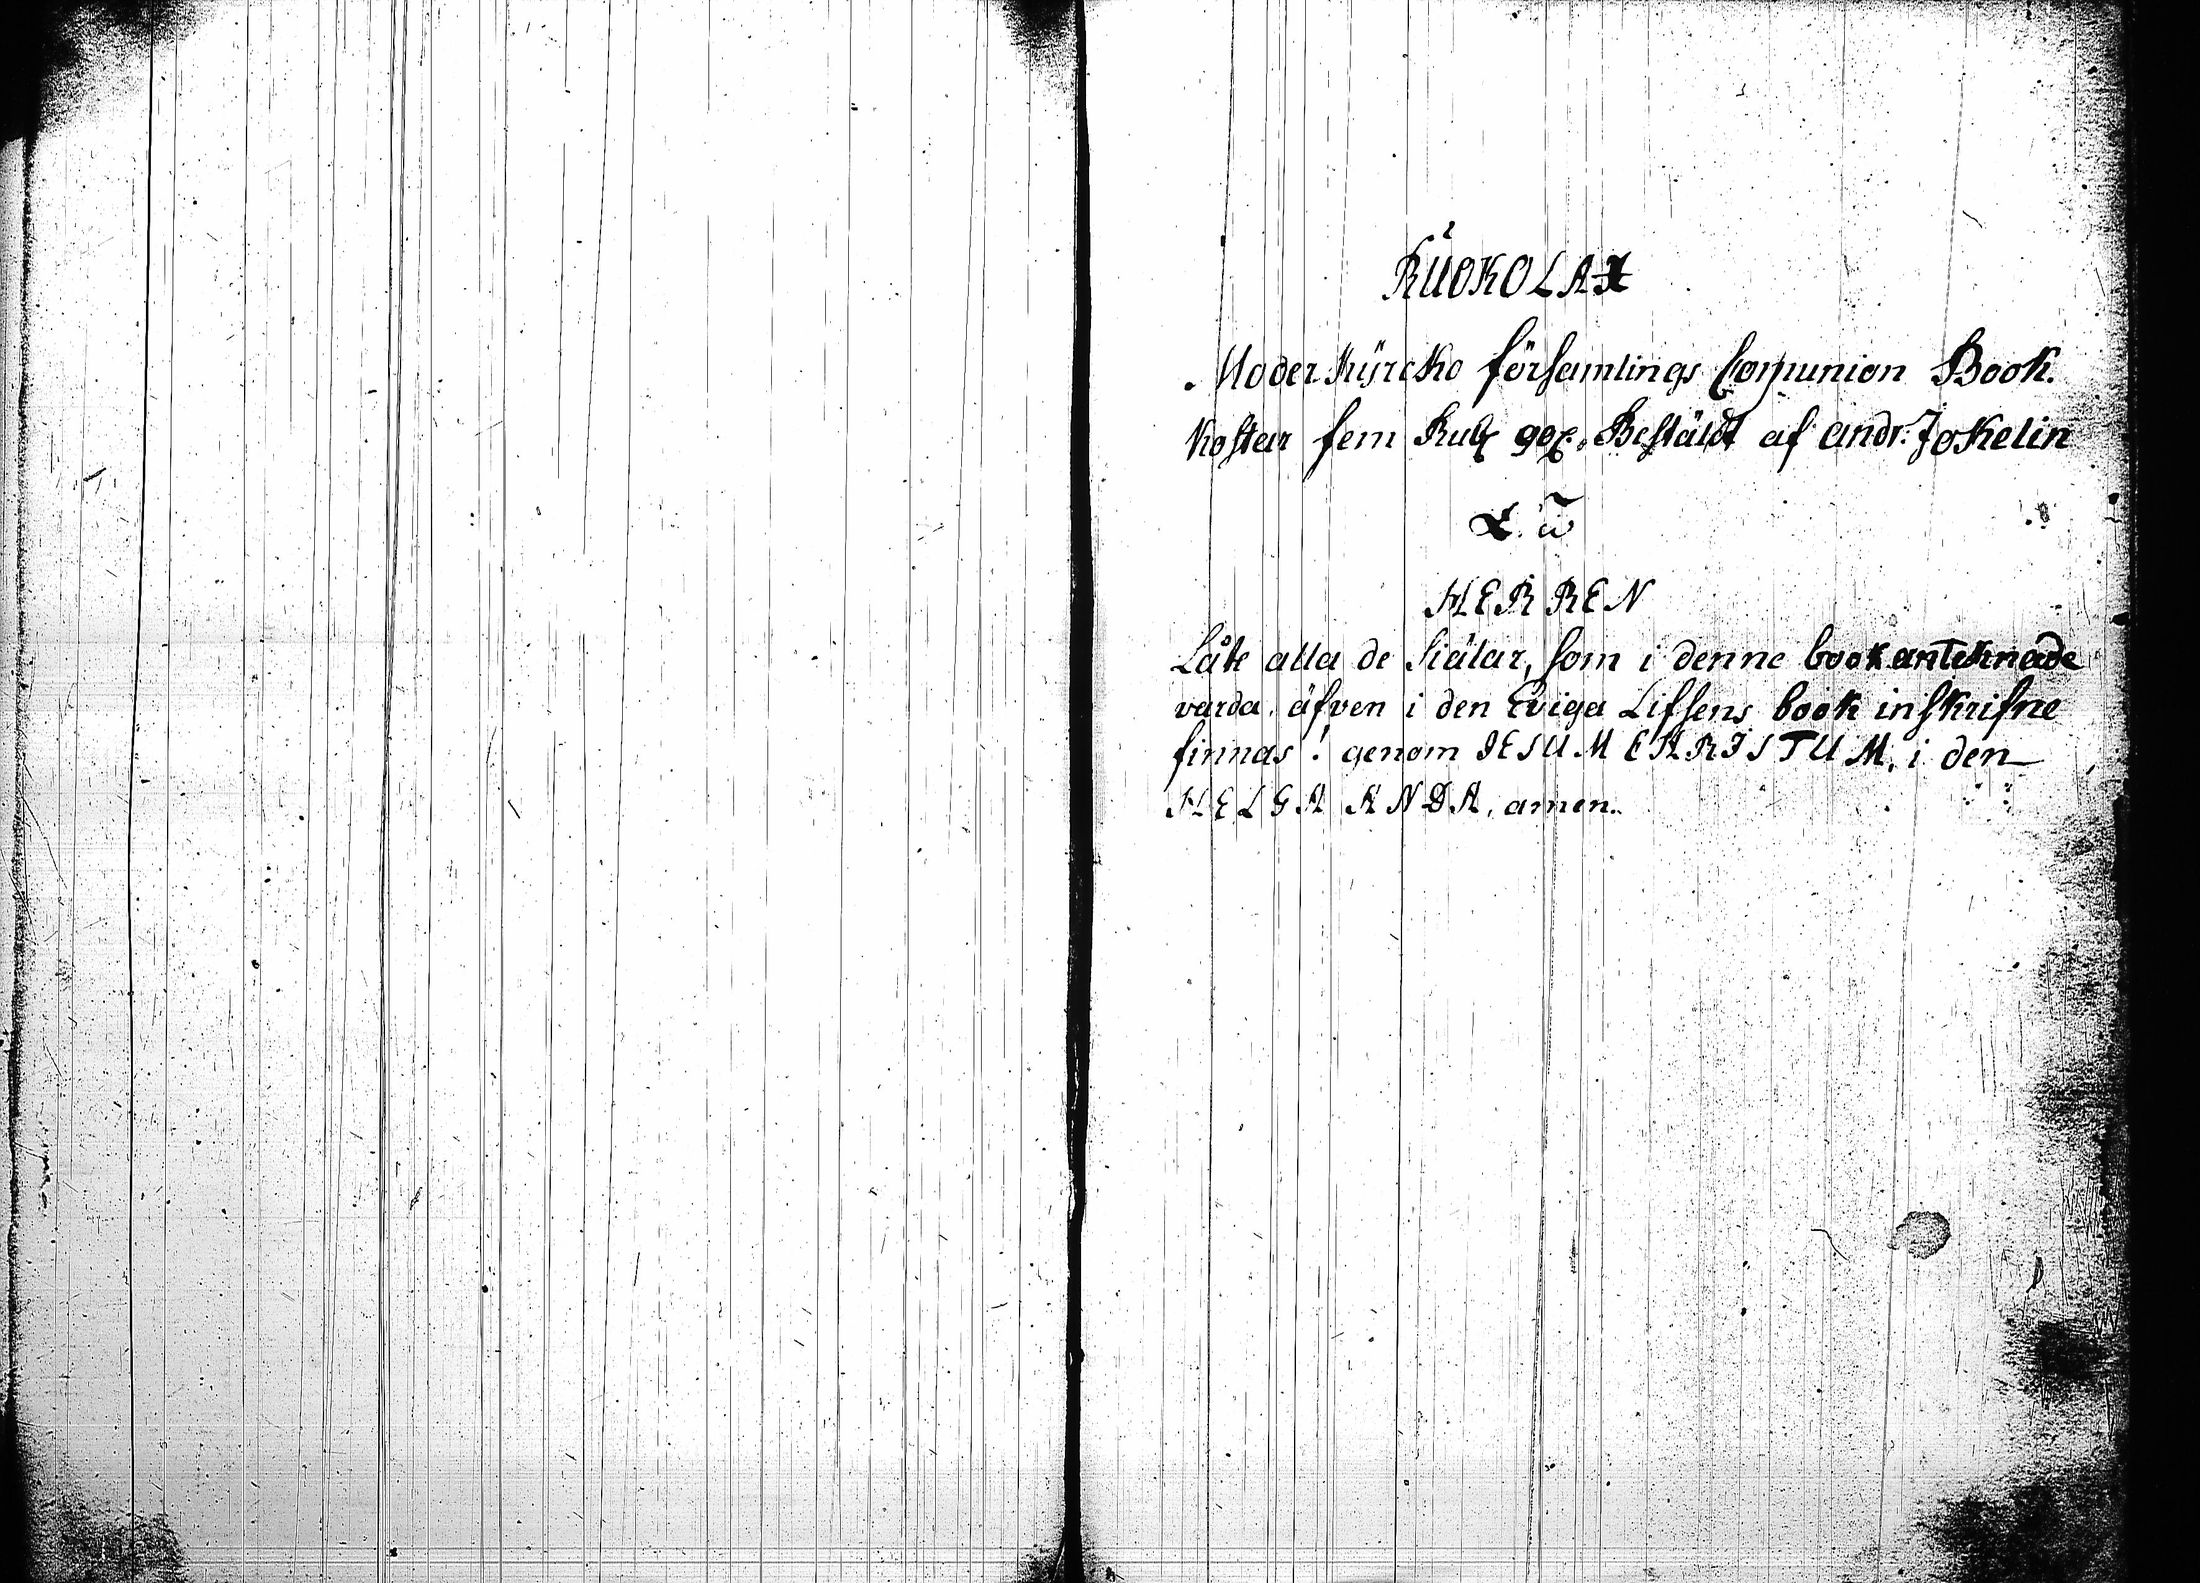 RUOKOLAX
Moder Kÿrcko församlings Com̄union Book.
Kostar fem Rub 90 x. Bestäldt af andr: Jokelin
α. ω
HERREN
Låte alla de siälar, som i denne book anteknade
varda, äfven i den Eviga Lifsens book inskrifne
finnas! genom JESUM CHRISTUM, i den
HELGA ANDA, amen..